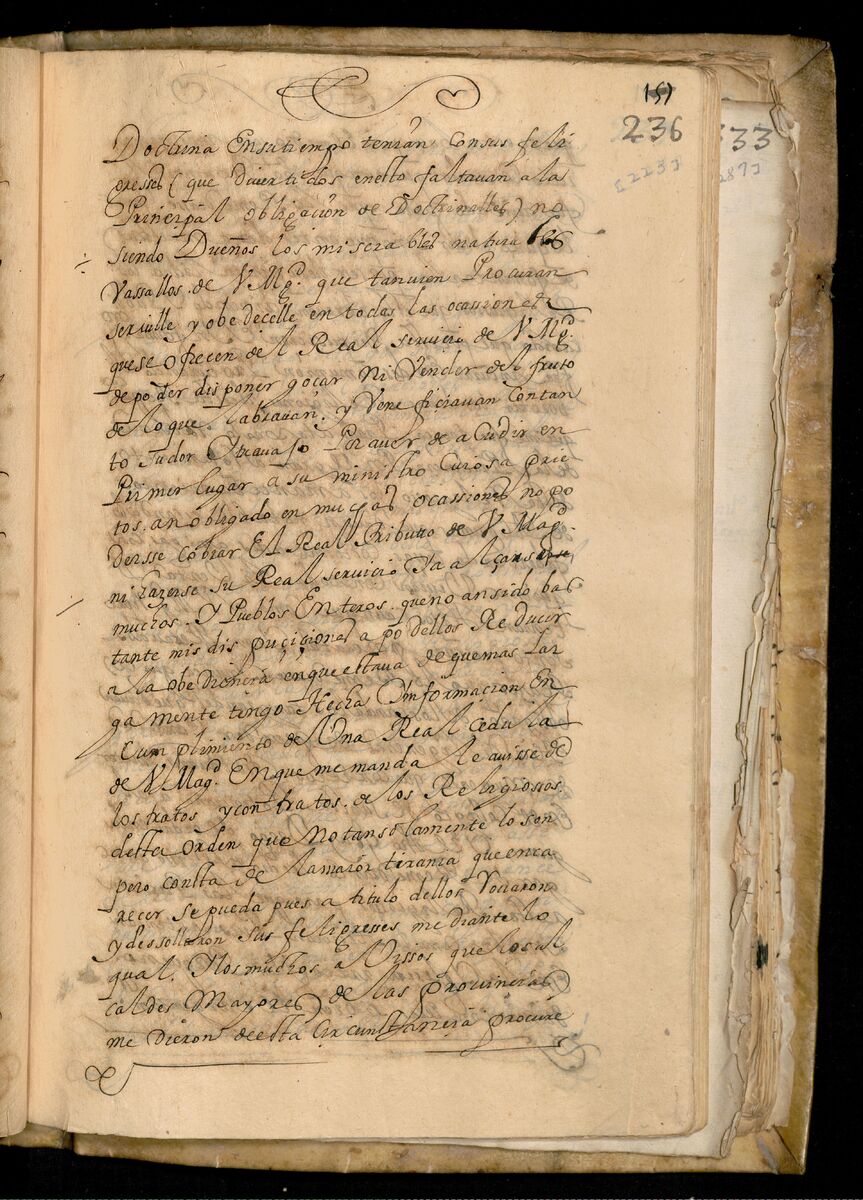 151
236
[223]
333
289]
Doctrina Ensutiempo tenian Consus feli
gresses (que divertidos enesto faltavan ala
Principal obligacion de Doctrinalles) no
siendo Dueños los miserables naturales
Vassallos. de V Mgd. que tanvien Procuran
serville y obedecelle en todas las ocassiones
quese ofrecen del Real servicio de V Mgd.
de poder disponer goçar Ni Vender del fruto
de lo que labravan. y Veneficiavan Contan
to sudor Ytravajo Poraver de aCudir en
Primer lugar a su ministro Curos a prie
tos. an obligado en muchas ocassiones no po
dersse cobrar El Real Tributto de V Magd.
ni hazerse su Real servicio Ya alçar
muchos. Y Pueblos Enteros. queno ansido bas
tante mis dispuçiciones a podellos Reducir
a la obediencia enque estava de quemas lar
gamente tingo Hecha Ynformacion En
Cumplimiento de Una Real Cedula
de V Magd. Enque me manda le avisse de
los tratos ycontratos. de los Religiossos.
desta orden que Notansolamente lo son
pero consta de lamaior tirania que enca
recer se pueda pues a titulo dellos
y dessollaron sus feligresses mediante lo
qual. Ylos muchos aVissos que los al
caldes Mayores de las provincias
me dieron de esta Circunstancia procure